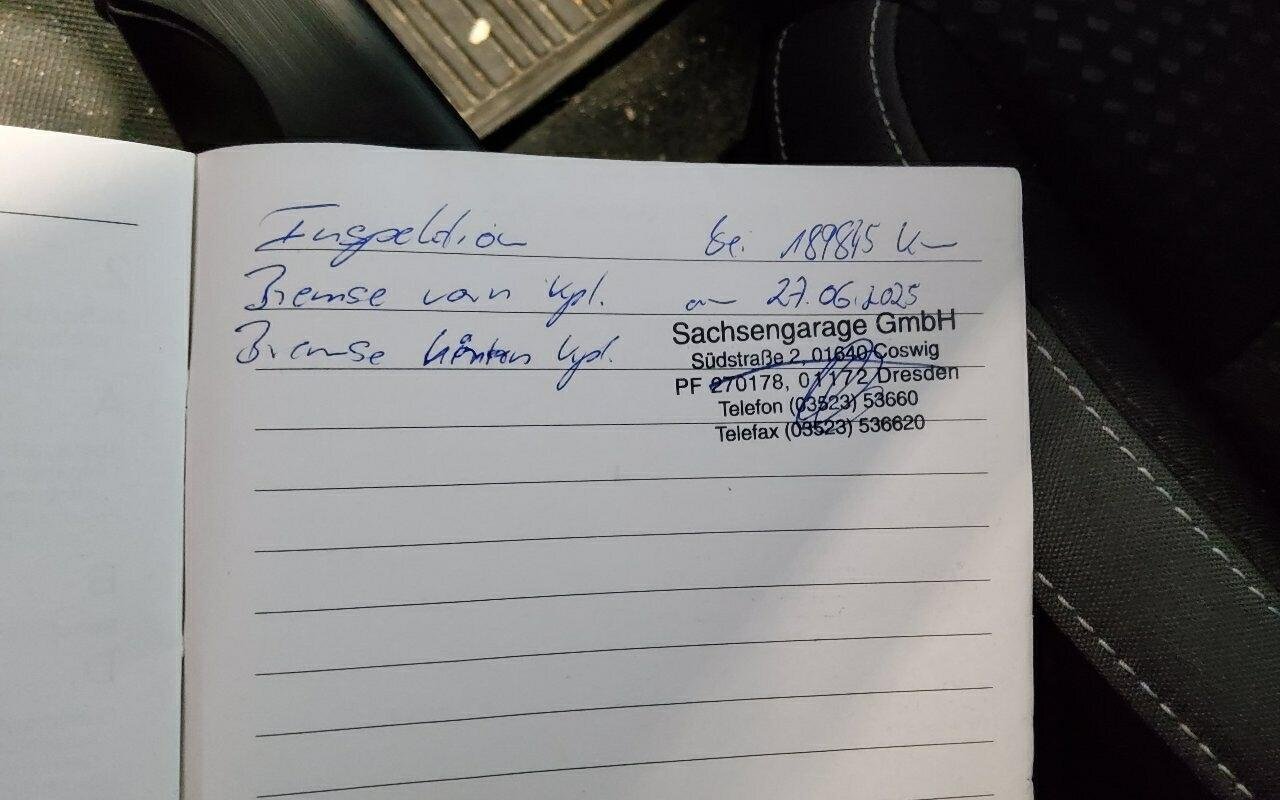 Inspektion bei 189845 Km
Bremse vorn kpl. am 27.06.2025
Bremse hinten kpl.
Sachsengarage GmbH
Südstraße 2, 01640 Coswig
PF 270178, 01172 Dresden
Telefon (03523) 53660
Telefax (03523) 536620